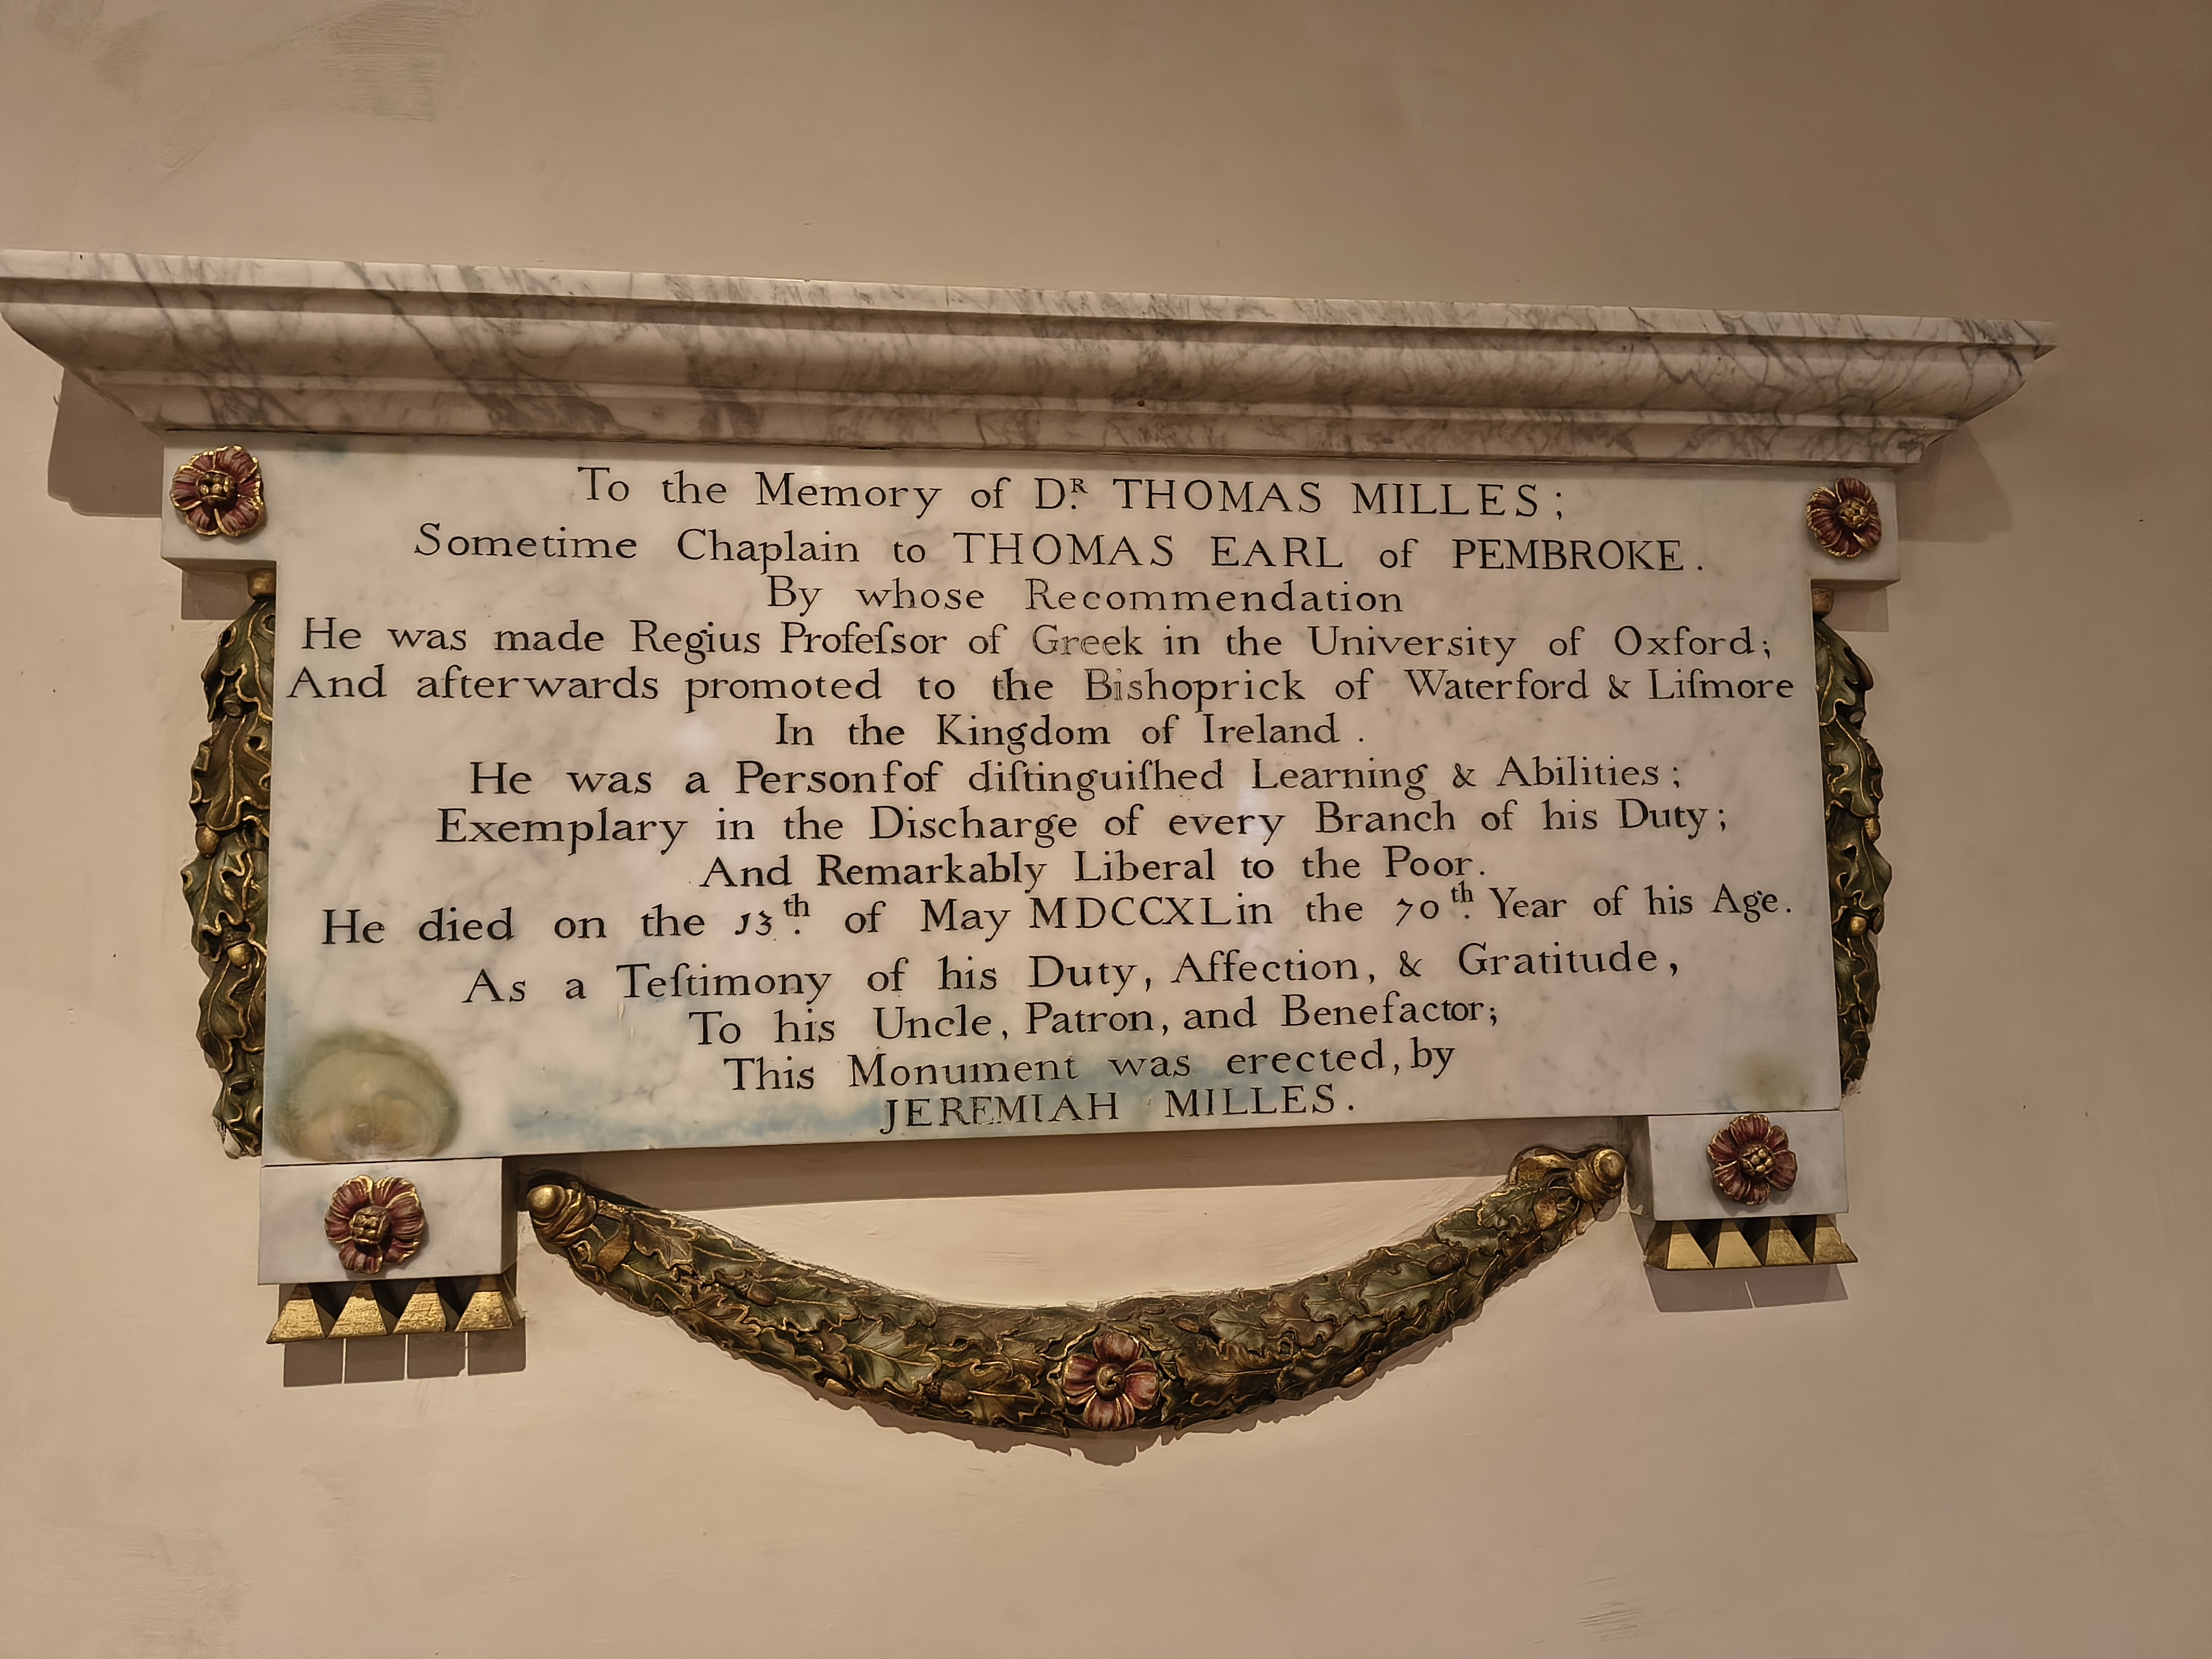 To the Memory of Dᴿ. THOMAS MILLES;
Sometime Chaplain to THOMAS EARL of PEMBROKE.
By whose Recommendation
He was made Regius Profeſsor of Greek in the University of Oxford;
And afterwards promoted to the Bishoprick of Waterford & Liſmore
In the Kingdom of Ireland.
He was a Personſof diſtinguiſhed Learning & Abilities;
Exemplary in the Discharge of every Branch of his Duty;
And Remarkably Liberal to the Poor.
He died on the 13th. of May MDCCXL in the 70th. Year of his Age.
As a Teſtimony of his Duty, Affection, & Gratitude,
To his Uncle, Patron, and Benefactor;
This Monument was erected, by
JEREMIAH MILLES.